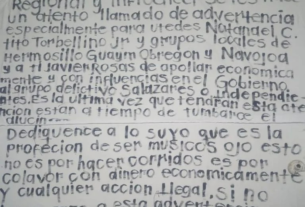 Regional y
un atento llamado de advertencia
especialmente para utedes Natanael C.
tito Torbellino Jr y grupos locales de
Hermosillo Guaym Obregon y Navojoa
ya dejen de apollar economica
mente y con influencias en el Gobierno
al grupo delictivo Salazares o Independie
ntes. Es la ultima vez que tendran esta ate
ncion estan a tiempo de tumbarce el
Dediquence a lo suyo que es la
profecion de ser musicos ojo esto
no es por hacer corridos es por
colavor con dinero economicamente
y cualquier accion Ilegal, si no
esta advert